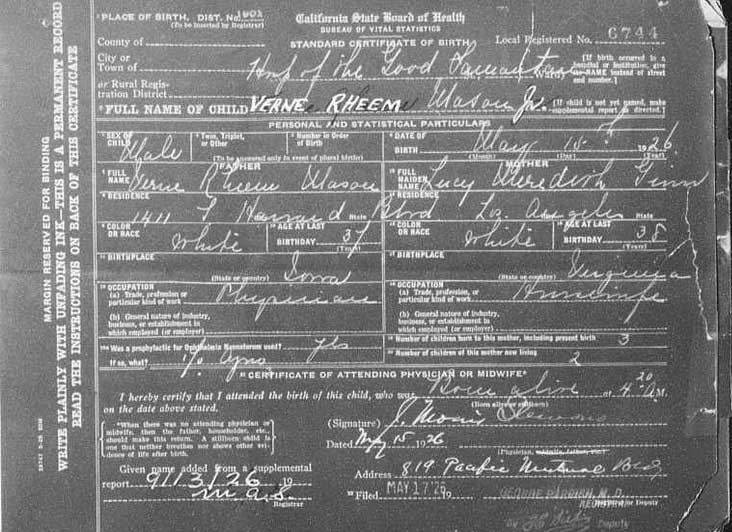 PLACE OF BIRTH. DIST. No. 1901
(To be inserted by Registrar)
California State Board of Health
BUREAU OF VITAL STATISTICS
STANDARD CERTIFICATE OF BIRTH
Local Registered No. 6744
County of
City or
Town of
Hosp of the Good Samaritan
[If birth occurred in a hospital or institution, give its NAME instead of street and number.]
or Rural Regis-
tration District
FULL NAME OF CHILD VERNE RHEEM Mason Jr.
[If child is not yet named, make supplemental report as directed.]
PERSONAL AND STATISTICAL PARTICULARS
SEX OF CHILD Male
Twin, Triplet, or Other
Number in Order of Birth
(To be answered only in event of plural births)
DATE OF BIRTH May 15 1926
(Month) (Day) (Year)
FATHER
FULL NAME Verne Rheem Mason
MOTHER
FULL MAIDEN NAME Lucy Meredith Ginn
RESIDENCE 1411 Blvd
RESIDENCE Los Angeles
COLOR OR RACE White
AGE AT LAST BIRTHDAY 37 (Years)
COLOR OR RACE White
AGE AT LAST BIRTHDAY 38 (Years)
BIRTHPLACE (State or country) Iowa
BIRTHPLACE (State or country) Virginia
OCCUPATION
(a) Trade, profession or particular kind of work Physician
(b) General nature of industry, business, or establishment in which employed (or employer)
OCCUPATION
(a) Trade, profession or particular kind of work Housewife
(b) General nature of industry, business, or establishment in which employed (or employer)
Was a prophylactic for Ophthalmia Neonatorum used? yes
If so, what? 1% Agno
Number of children born to this mother, including present birth 3
Number of children of this mother now living 2
CERTIFICATE OF ATTENDING PHYSICIAN OR MIDWIFE*
I hereby certify that I attended the birth of this child, who was Born alive at 4 20 A M.
(Born alive or stillborn)
on the date above stated.
*When there was no attending physician or midwife, then the father, householder, etc., should make this return. A stillborn child is one that neither breathes nor shows other evidence of life after birth.
(Signature)
Dated May 15 1926
(Physician, midwife, father, etc.)
Given name added from a supplemental
report 9/13/26 19
m a s.
Registrar
Address 819 Pacific Mutual Bldg
Filed MAY 17 '26 19
GEORGE PARRISH, M. D.
REGISTRAR
or Deputy
By Deputy
MARGIN RESERVED FOR BINDING
WRITE PLAINLY WITH UNFADING INK—THIS IS A PERMANENT RECORD
READ THE INSTRUCTIONS ON BACK OF THIS CERTIFICATE